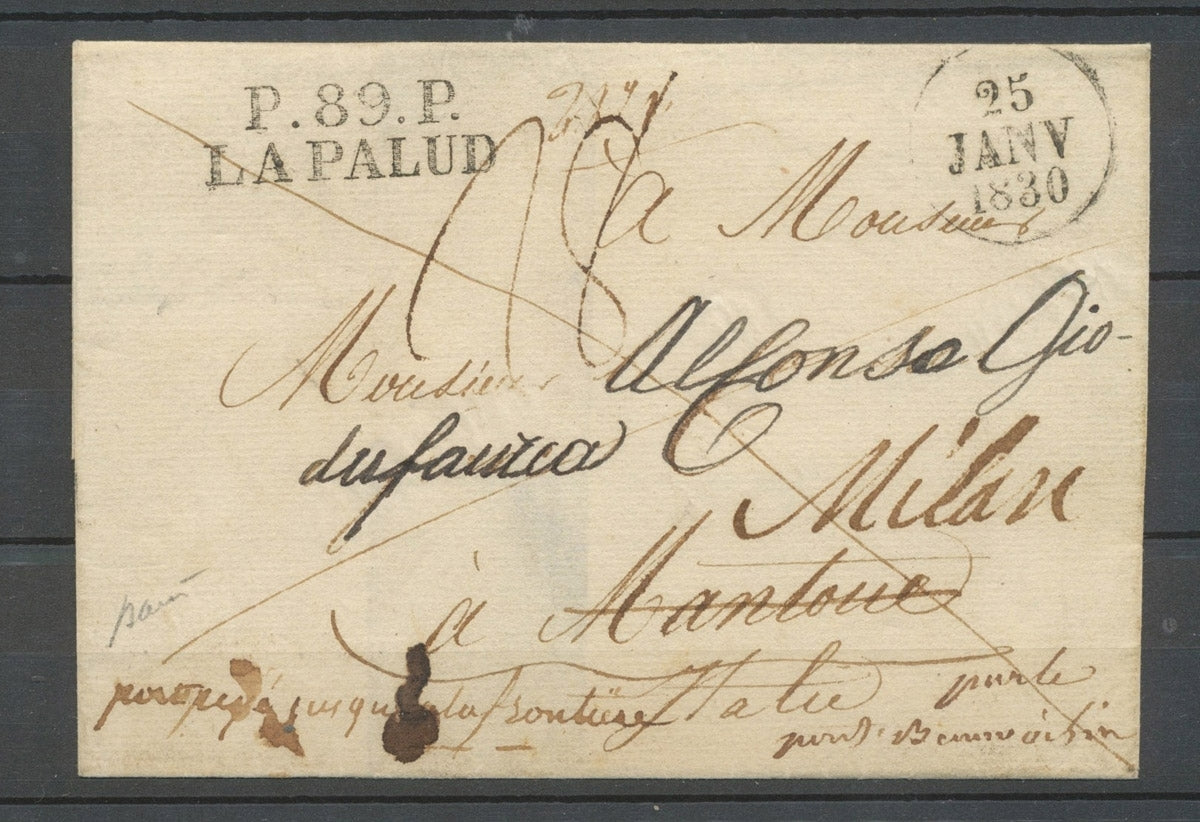 P.89.P.
LA PALUD
25
JANV
1830
à Monsieur
Monsieur Alfonso Gio-
Milan
à Mantoue
port payé jusqu'à la frontière Italie par le
pont Beauvoisin